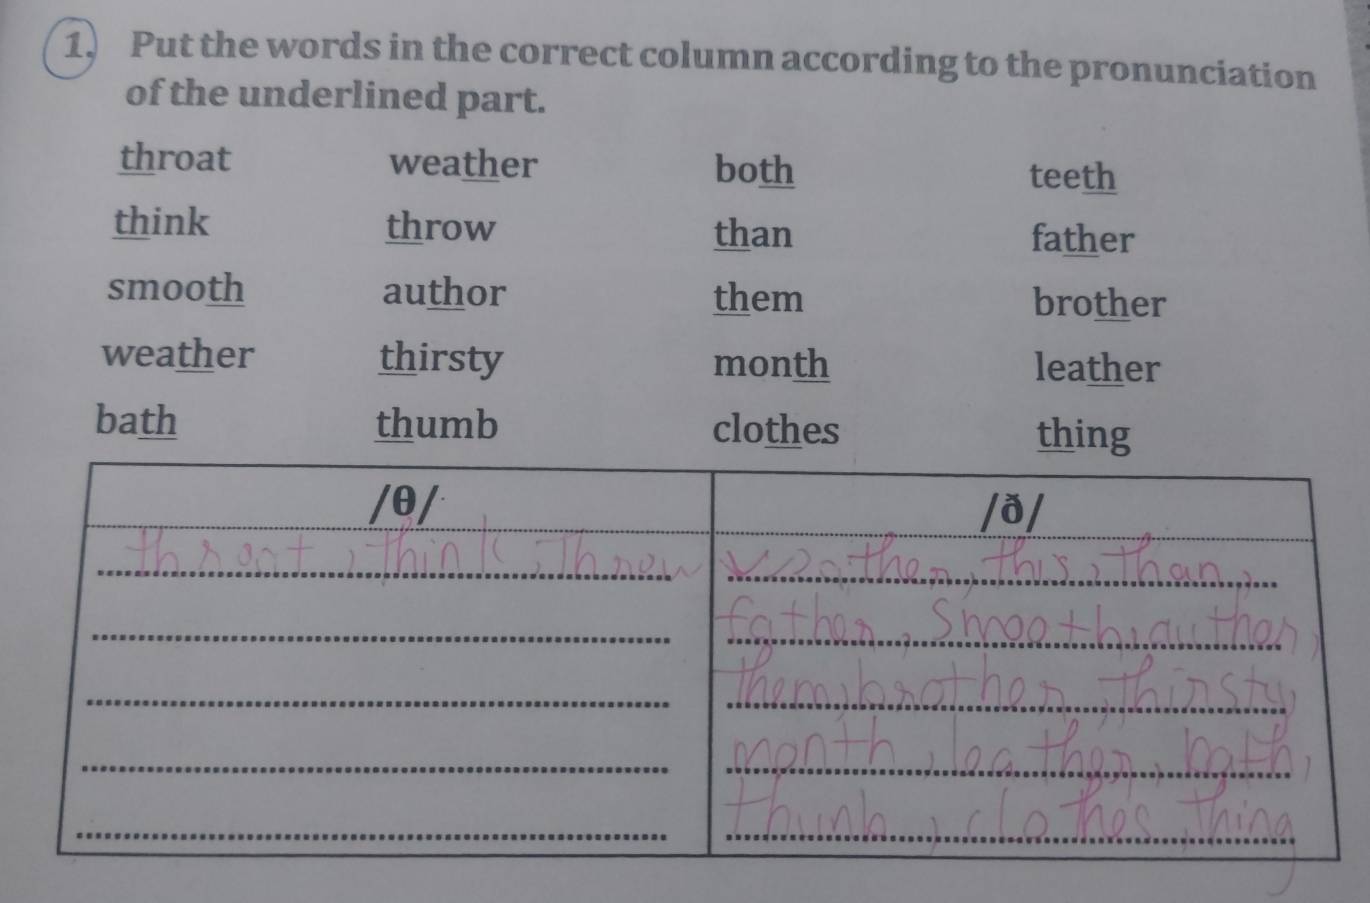 1. Put the words in the correct column according to the pronunciation
of the underlined part.
throat weather both teeth
think throw than father
smooth author them brother
weather thirsty month leather
bath thumb clothes thing
/θ/ /ð/
throat, think, Throw weather, this, Than,
father, Smooth, author,
Them, brother, thirsty
month, leather, bath,
thumb, clothes, thing